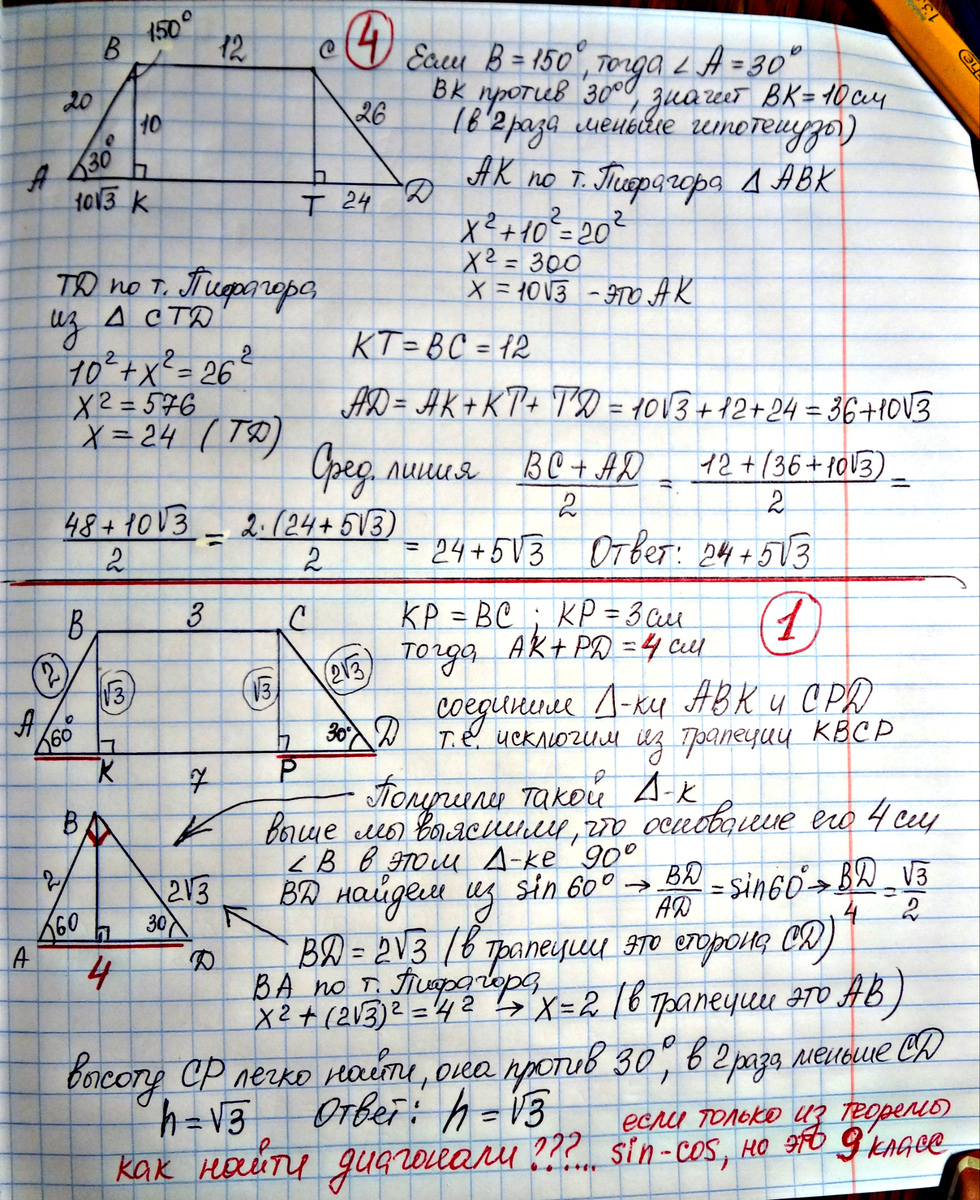 150°
B 12 C
④
20 10 26
30°
A 10√3 K T 24 D
Если B = 150°, тогда ∠A = 30°
BK против 30°, значит BK = 10 см
(в 2 раза меньше гипотенузы)
AK по т. Пифагора Δ ABK
x² + 10² = 20²
x² = 300
x = 10√3 - это AK
TD по т. Пифагора
из Δ CTD
10² + x² = 26²
x² = 576
x = 24 (TD)
KT = BC = 12
AD = AK + KT + TD = 10√3 + 12 + 24 = 36 + 10√3
Сред. линия (BC + AD)/2 = (12 + (36 + 10√3))/2 =
(48 + 10√3)/2 = 2·(24 + 5√3)/2 = 24 + 5√3 Ответ: 24 + 5√3
B 3 C
2 √3 √3 2√3
A 60° 30° D
K 7 P
KP = BC ; KP = 3 см
①
тогда AK + PD = 4 см
соединим Δ-ки ABK и CPD
т.е. исключим из трапеции KBCP
Получили такой Δ-к
выше мы выяснили, что основание его 4 см
∠B в этом Δ-ке 90°
BD найдем из sin 60° → BD/AD = sin 60° → BD/4 = √3/2
B
2 2√3
60 30
A 4 D
BD = 2√3 (в трапеции это сторона CD)
BA по т. Пифагора
x² + (2√3)² = 4² → x = 2 (в трапеции это AB)
высоту CP легко найти, она против 30°, в 2 раза меньше CD
h = √3 Ответ: h = √3
если только из теоремы
как найти диагонали ???... sin-cos, но это 9 класс